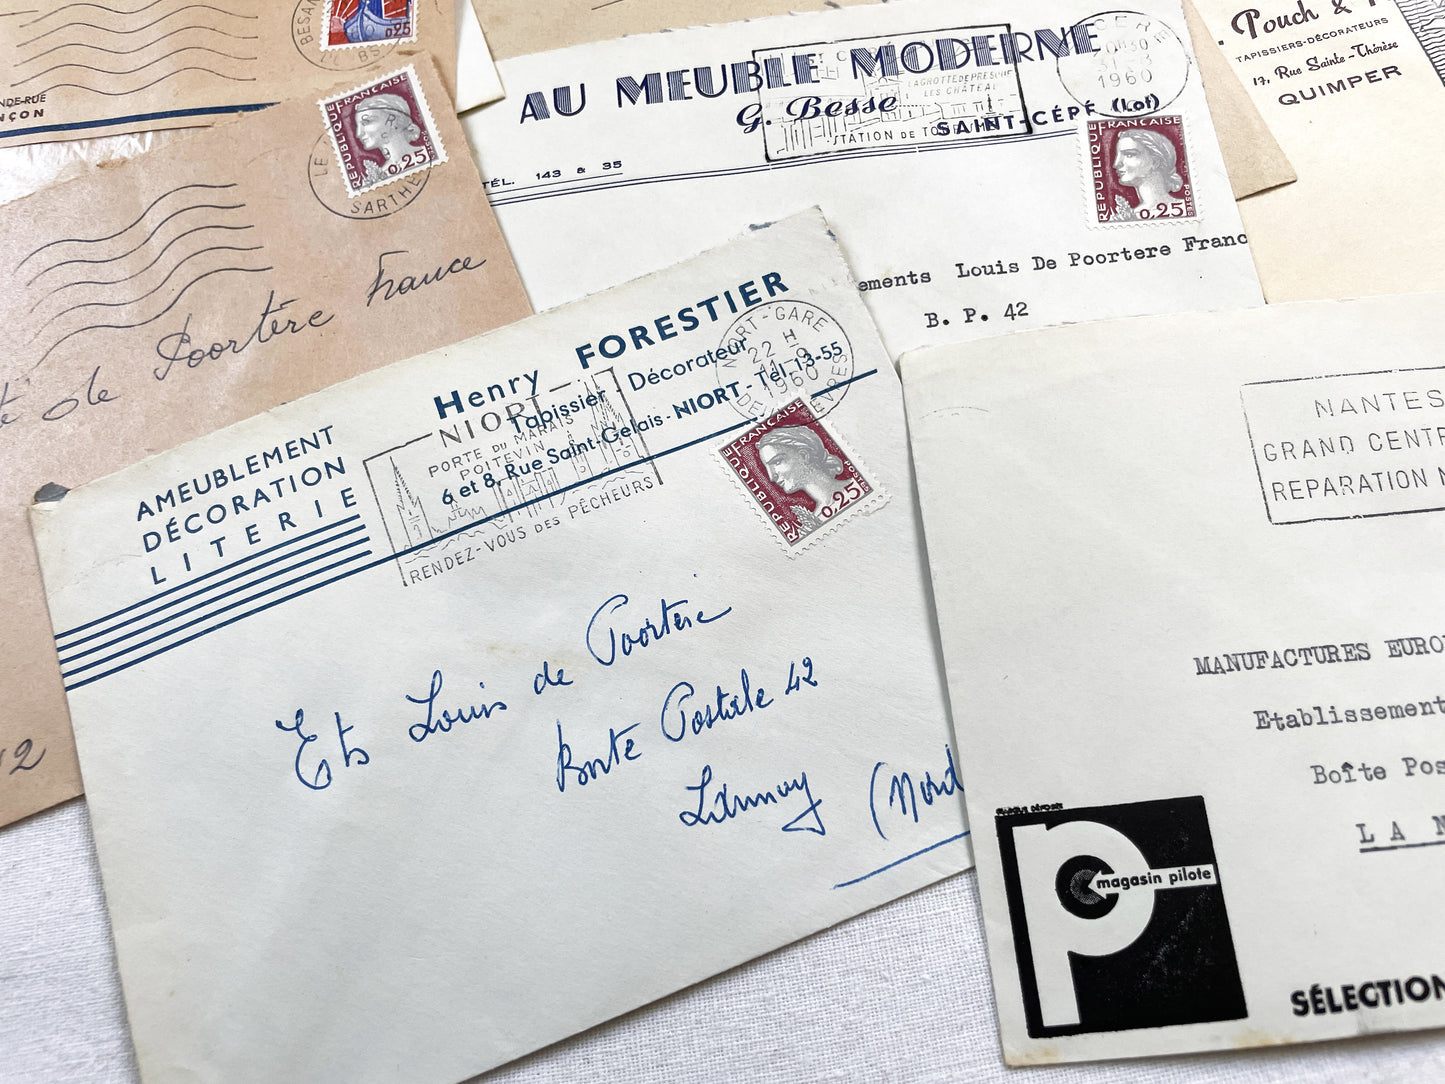 BESAN
0,25
NDE-RUE
NÇON
REPUBLIQUE FRANÇAISE
0,25
LE
SARTHE
de Poortère France
12
AU MEUBLE MODERNE
G. Besse
SAINT-CÉPÉ (Lot)
TÉL. 143 & 35
LES CHÂTEAU
STATION DE TO
CERE
1960
REPUBLIQUE FRANÇAISE
POSTES
0,25
ements Louis De Poortere Franc
B. P. 42
Pouch &
TAPISSIERS-DÉCORATEURS
17, Rue Sainte-Thérèse
QUIMPER
Henry FORESTIER
Tapissier - Décorateur
6 et 8, Rue Saint-Gelais - NIORT - Tél. 13-55
AMEUBLEMENT
DÉCORATION
LITERIE
NIORT
PORTE DU MARAIS
POITEVIN
RENDEZ-VOUS DES PÊCHEURS
NIORT-GARE
22 H
1960
REPUBLIQUE FRANÇAISE
0,25
POSTES
Ets Louis de Poortère
Boite Postale 42
Lannoy (Nord
NANTES
GRAND CENTR
REPARATION N
MANUFACTURES EURO
Etablissement
Boîte Pos
LA N
magasin pilote
SÉLECTION